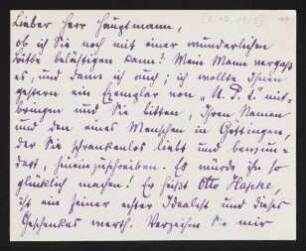 Lieber Herr Hauptmann,
ob ich Sie noch mit einer wunderlichen
Bitte belästigen kann? Mein Mann vergaß
es, und dann ich auch; ich wollte Ihnen
gestern ein Exemplar von „U. P. t." mit-
bringen und Sie bitten, Ihren Namen
und den eines Menschen in Göttingen,
der Sie schrankenlos liebt und bewun-
dert, hineinzuschreiben. Es würde ihn so
glücklich machen! Er heißt Otto
ist ein feiner echter Idealist und dieses
Geschenkes werth. Verzeihen Sie mir